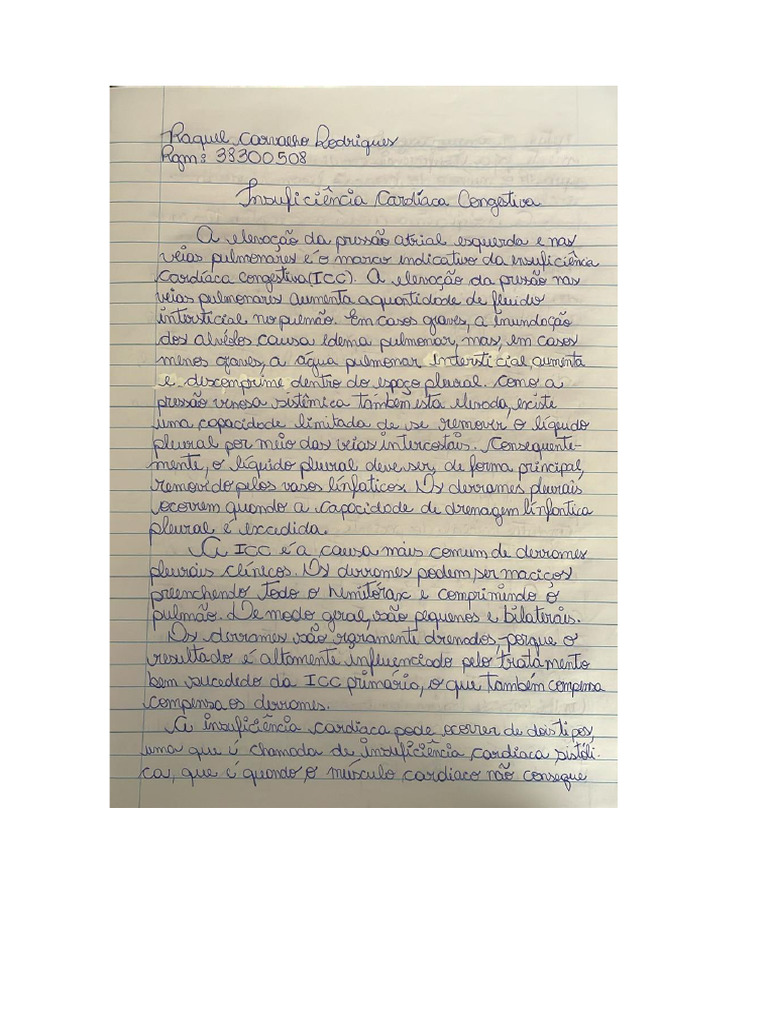 Raquel Carvalho Rodrigues
Rgm: 38300508
Insuficiência Cardíaca Congestiva
A elevação da pressão atrial esquerda e nas
veias pulmonares é o marco indicativo da insuficiência
Cardíaca Congestiva (ICC). A elevação da pressão nas
veias pulmonares aumenta a quantidade de fluido
intersticial no pulmão. Em casos graves, a inundação
dos alvéolos causa edema pulmonar, mas, em casos
menos graves, a água pulmonar intersticial, aumenta
e discomprime dentro do espaço pleural. Como a
pressão venosa sistêmica também esta elevada, existe
uma capacidade limitada de se remover o líquido
pleural por meio das veias intercostais. Consequente-
mente, o líquido pleural deve ser, de forma principal,
removido pelos vasos linfáticos. Os derrames pleurais
ocorrem quando a capacidade de drenagem linfontica
pleural é excedida.
A ICC é a causa mais comum de derrames
pleurais clínicos. Os derrames podem ser maciços
preenchendo todo o hemitórax e comprimindo o
pulmão. De modo geral, são pequenos e bilaterais.
Os derrames são raramente drenados, porque o
resultado é altamente influenciado pelo tratamento
bem sucedido da ICC primário, o que também compensa
compensa os derrames.
A insuficiência cardíaca pode ocorrer de dois tipos,
uma que é chamada de insuficiência cardíaca sistóli-
ca, que é quando o músculo cardíaco não consegue